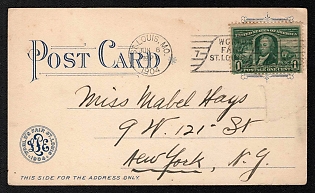 POST CARD
ST. LOUIS, MO.
1904
7
WO
FA
ST. LOUI
1
Miss Mabel Hays
9 W. 121- St
New York, N.Y.
WORLD'S FAIR ST. LOUIS
1904
THIS SIDE FOR THE ADDRESS ONLY.